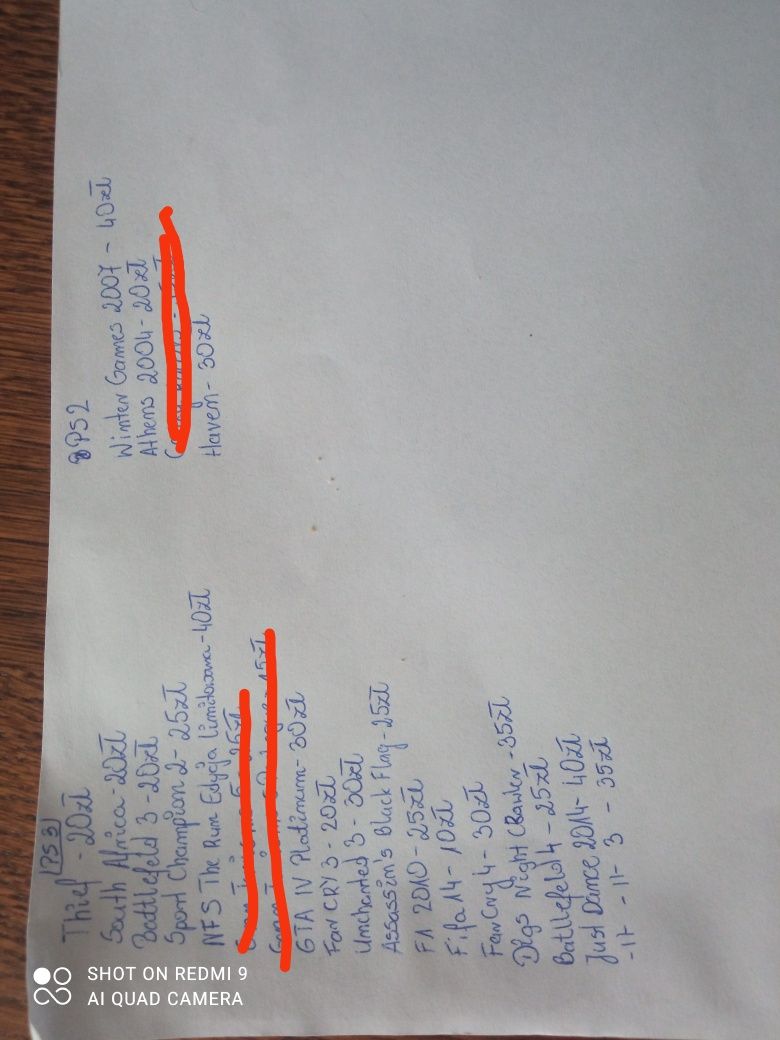 PS3
Thief - 20zł
South Africa - 20zł
Battlefeld 3 - 20zł
Sport Champion 2 - 25zł
NFS The Run Edycja limitowana - 40zł
5 - 25zł
15zł
GTA IV Platinum - 30zł
Far CRY 3 - 20zł
Uncharted 3 - 30zł
Assassin's Black Flag - 25zł
F1 2010 - 25zł
Fifa 14 - 10zł
Far Cry 4 - 30zł
Digs Night CRawler - 35zł
Battlefeld 4 - 25zł
Just Dance 2014 - 40zł
-11- -11- 3 - 35zł
PS2
Winter Games 2007 - 40zł
Athens 2004 - 20zł
Haven - 30zł
SHOT ON REDMI 9
AI QUAD CAMERA